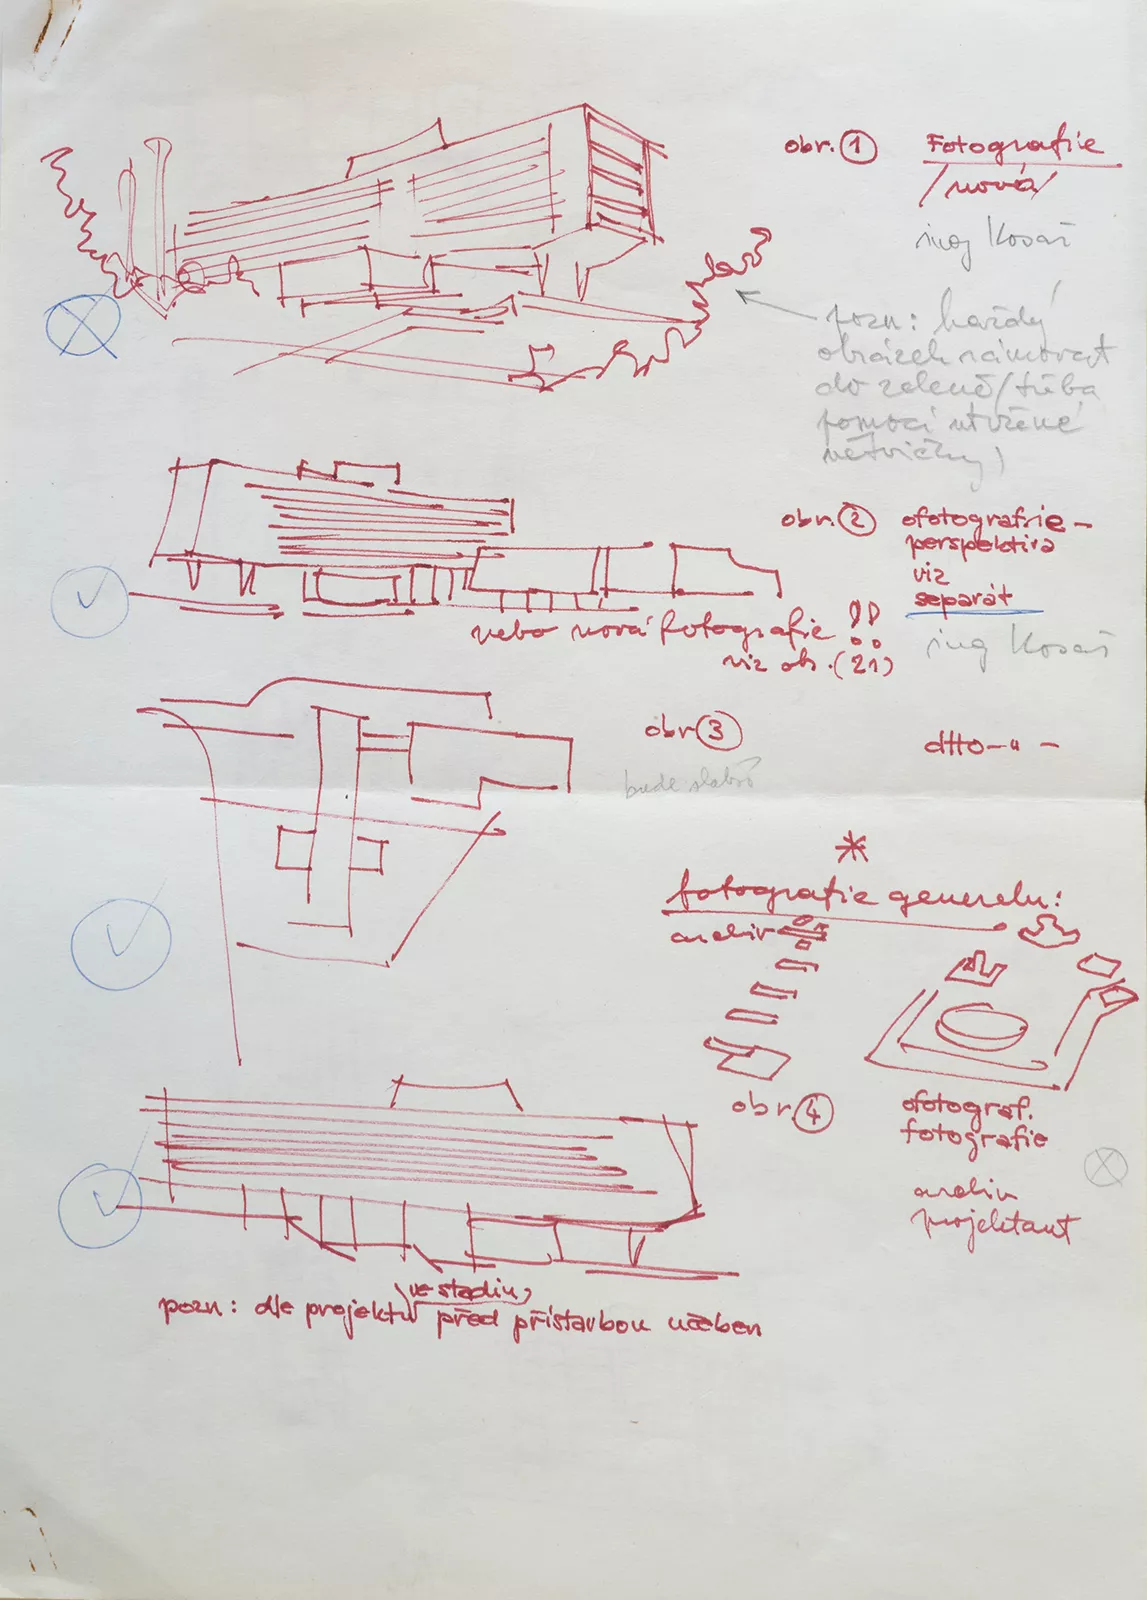 obr. 1 Fotografie
/nová/
ing Kosaš
pozn: každý
obrázek rámovat
do zeleně/třeba
pomocí utržené
větvičky)
obr. 2 ofotografie -
perspektiva
viz
separát
nebo nová fotografie !!
viz ob. (21)
ing Kosaš
obr 3 dtto -"-
bude slabší
*
fotografie generelu:
archiv
obr. 4 ofotograf.
fotografie
archiv
projektant
ve stadiu
pozn: dle projektu před přístavbou učeben